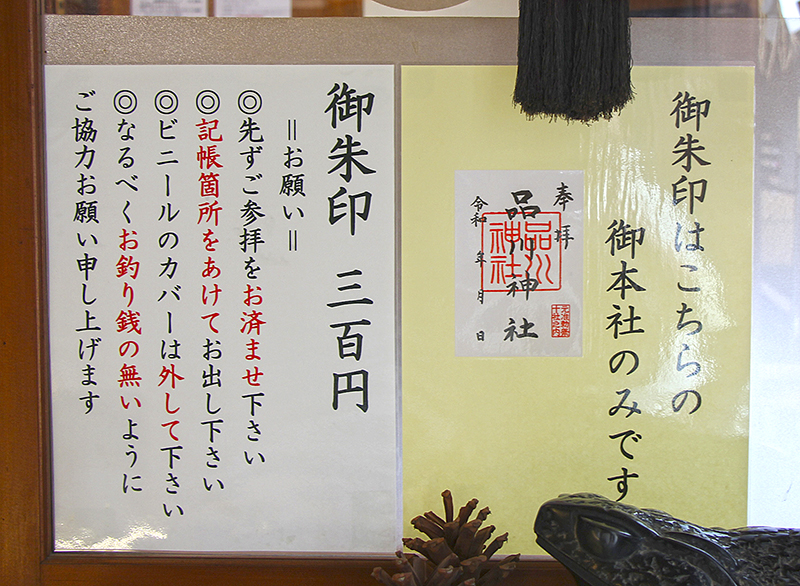 御朱印はこちらの
御本社のみです
奉拝
品川神社
品川神社
令和 年 月 日
御朱印 三百円
＝お願い＝
◎先ずご参拝をお済ませ下さい
◎記帳箇所をあけてお出し下さい
◎ビニールのカバーは外して下さい
◎なるべくお釣り銭の無いように
ご協力お願い申し上げます